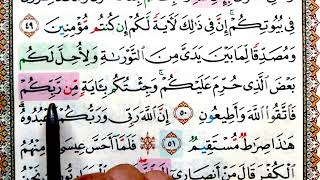 فِى بُيُوتِكُمْ إِنَّ فِى ذَٰلِكَ لَـَٔايَةً لَّكُمْ إِن كُنتُم مُّؤْمِنِينَ ٤٩
وَمُصَدِّقًا لِّمَا بَيْنَ يَدَىَّ مِنَ ٱلتَّوْرَىٰةِ وَلِأُحِلَّ لَكُم
بَعْضَ ٱلَّذِى حُرِّمَ عَلَيْكُمْ وَجِئْتُكُم بِـَٔايَةٍ مِّن رَّبِّكُمْ
فَٱتَّقُوا۟ ٱللَّهَ وَأَطِيعُونِ ٥٠ إِنَّ ٱللَّهَ رَبِّى وَرَبُّكُمْ فَٱعْبُدُوهُ
هَٰذَا صِرَٰطٌ مُّسْتَقِيمٌ ٥١ فَلَمَّآ أَحَسَّ عِيسَىٰ مِنْهُمُ
ٱلْكُفْرَ قَالَ مَنْ أَنصَارِىٓ